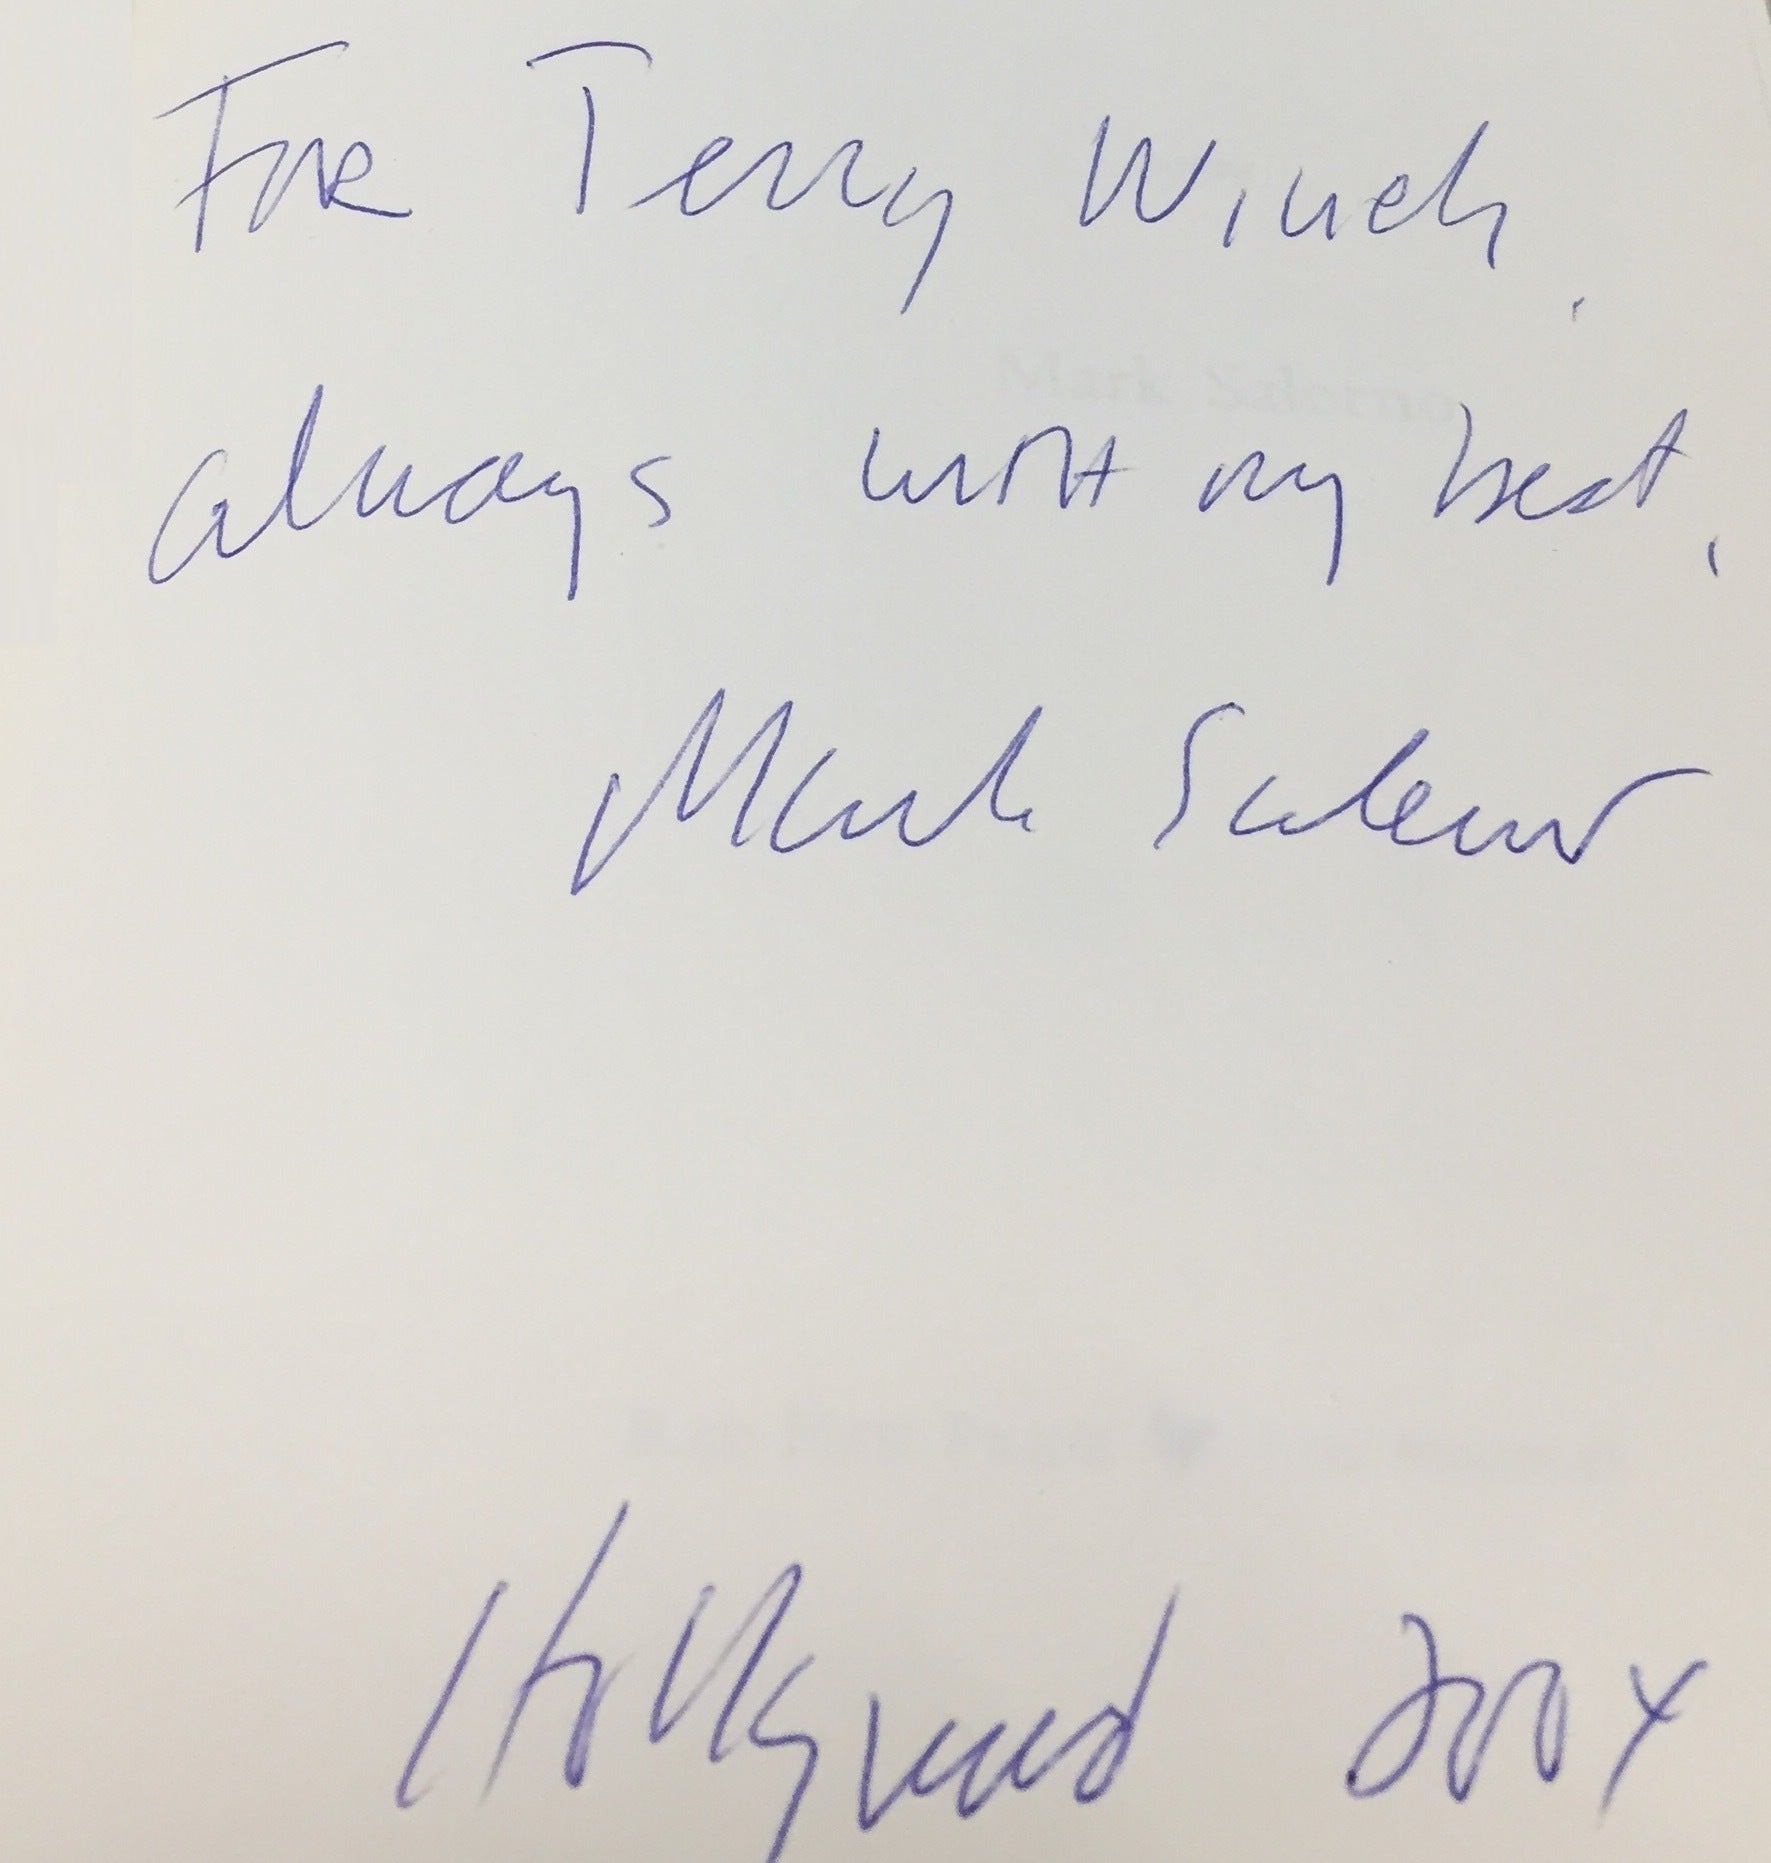 For Terry Winch,
Mark Salerno
always with my best,
Mark Salerno
Hollywood 2004